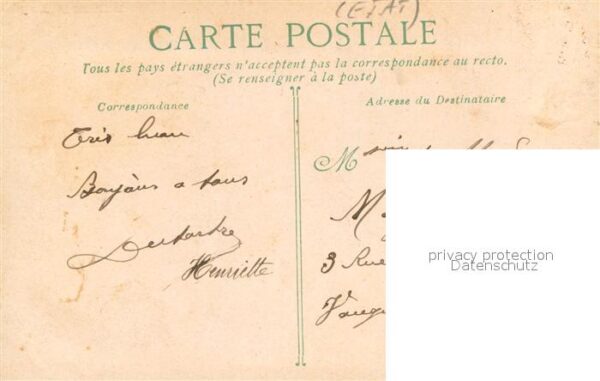 (ETAT)
CARTE POSTALE
Tous les pays étrangers n'acceptent pas la correspondance au recto.
(Se renseigner à la poste)
Correspondance
Adresse du Destinataire
Très beau
Bonjours a tous
Henriette
M
3 Rue
Vaug
privacy protection
Datenschutz